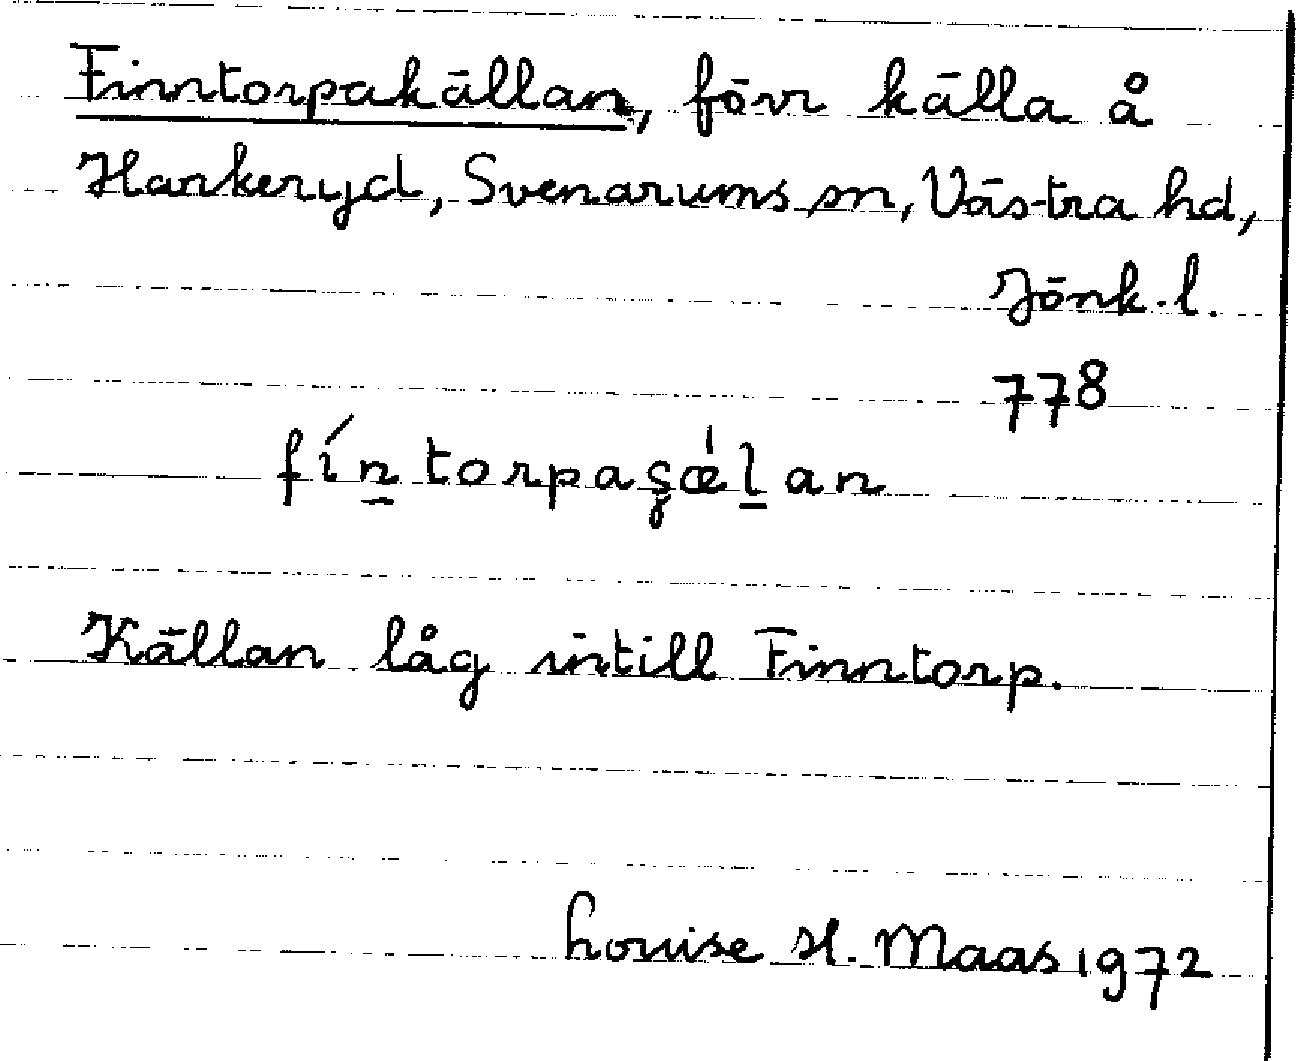 Finntorpakällan, förr källa å
Hankeryd, Svenarums sn, Västra hd,
Jönk. l.
778
fíṉtorpaʂǽḻan
Källan låg intill Finntorp.
Louise H. Maas 1972